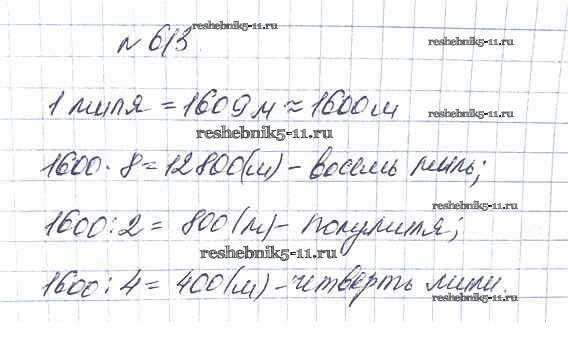 reshebnik5-11.ru
№ 613 reshebnik5-11.ru
1 миля = 1609м ≈ 1600м reshebnik5-11.ru
reshebnik5-11.ru
1600 · 8 = 12800(м) – восемь миль;
reshebnik5-11.ru
1600 : 2 = 800(м) – полумиля;
reshebnik5-11.ru
1600 : 4 = 400(м) – четверть мили.
reshebnik5-11.ru